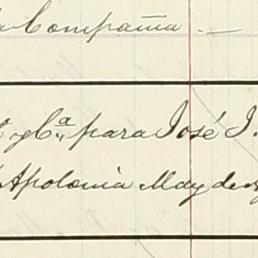 Compañia
y Ca para José I.
Apolonia May de